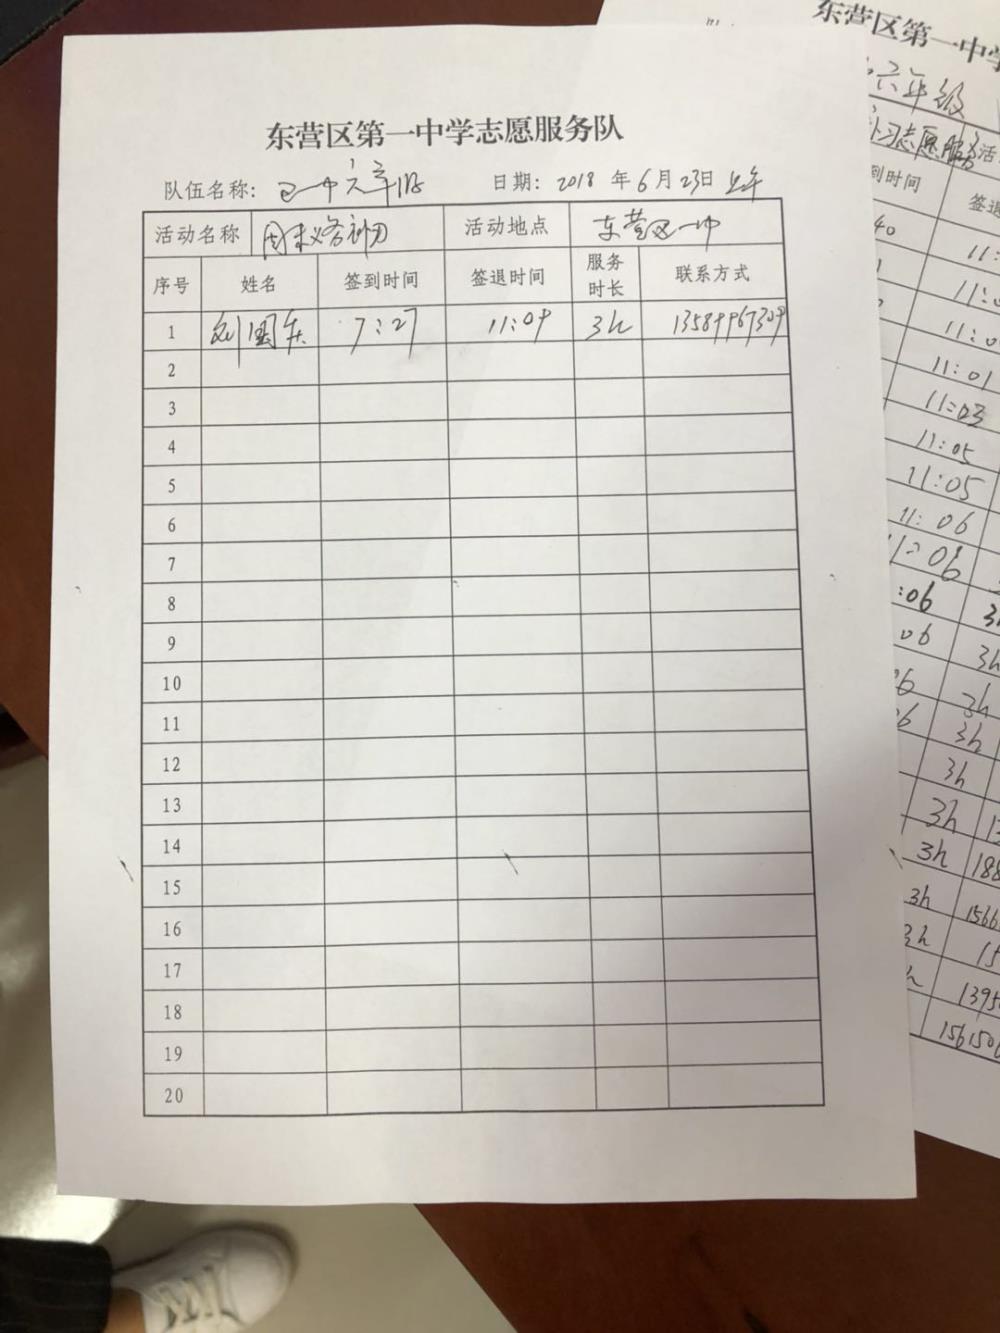 东营区第一中学志愿服务队
队伍名称: 一中六年级
日期: 2018 年 6 月 23日 上午
活动名称 周末义务补习 活动地点 东营区一中
序号 姓名 签到时间 签退时间 服务时长 联系方式
1 刘国庆 7:27 11:09 3h
2
3
4
5
6
7
8
9
10
11
12
13
14
15
16
17
18
19
20
东营区第一中学
六年级
补习志愿服务 活
到时间 签退
40 11:
11:0
11:0
11:01
11:03
11:05
11:05
11:06
11:06
:06 3h
06 3h
06 3h
06 3h
3h
3h
3h 188
3h 1566
3h 15
h 1395
156150